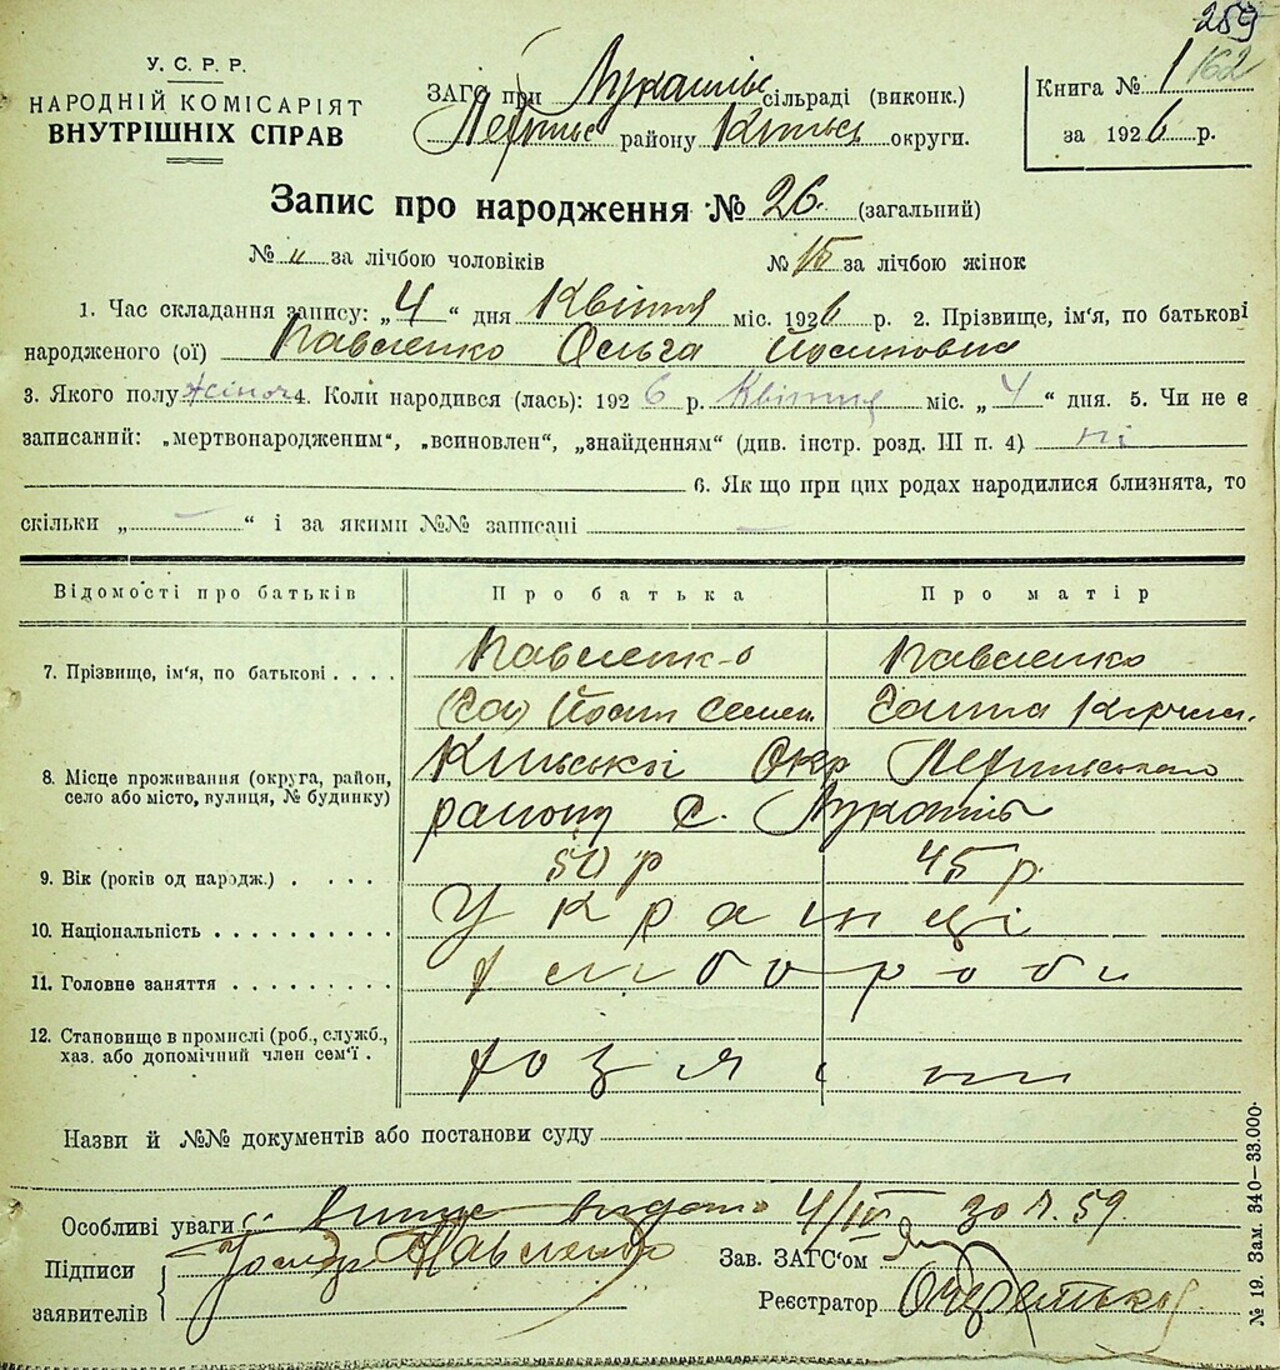 259
162
У. С. Р. Р.
НАРОДНІЙ КОМІСАРІЯТ
ВНУТРІШНІХ СПРАВ
ЗАГС при Лукашівс сільраді (виконк.)
району Київсь округи.
Книга № 1
за 1926 р.
Запис про народження № 26. (загальний)
№ " за лічбою чоловіків
№ 15 за лічбою жінок
1. Час складання запису: „4“ дня Квітня міс. 1926 р. 2. Прізвище, ім‘я, по батькові
народженого (ої) Павленко Ольга Йосиповна
3. Якого полу жіноч 4. Коли народився (лась): 1926 р. Квітня міс. „4“ дня. 5. Чи не є
записаний: „мертвонародженим“, „всиновлен“, „знайденням“ (див. інстр. розд. III п. 4) ні
6. Як що при цих родах народилися близнята, то
скільки „ — “ і за якими №№ записані —
Відомості про батьків Про батька Про матір
7. Прізвище, ім‘я, по батькові . . . . Павленко Павленко
Йосип Семен. Ганна
8. Місце проживання (округа, район, село або місто, вулиця, № будинку) Київської Окр
району с. Лукашів
9. Вік (років од народж.) . . . . 50 р 45 р.
10. Національність . . . . . . . . . . Українці
11. Головне заняття . . . . . . . . . хлібороби
12. Становище в промислі (роб., служб.,
хаз. або допомічний член сем‘ї . хозяїни
Назви й №№ документів або постанови суду
Особливі уваги: випис видано 4/IV за № 59.
Підписи
заявителів
Павленко
Зав. ЗАГС‘ом
Реєстратор
№ 19. Зам. 340—33.000.